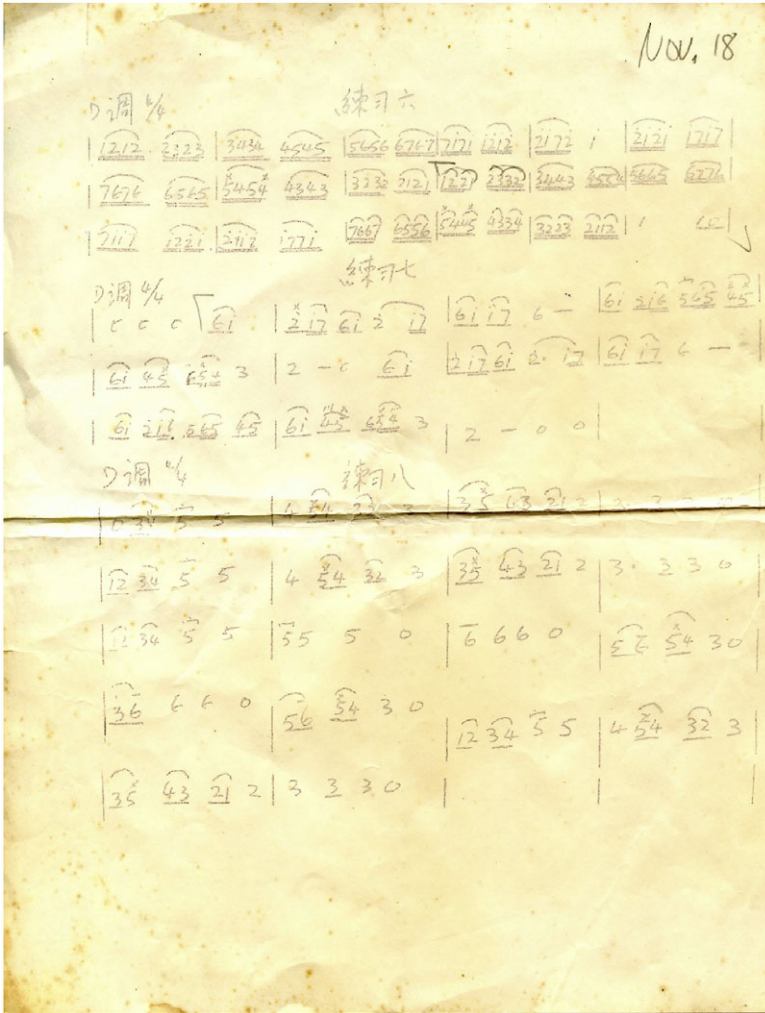 Nov. 18
D调 4/4 練习六
| 1212 2323 | 3434 4545 | 5656 6767 | 7171 1212 | 2172 1 | 2121 1717 |
| 7676 6565 | 5454 4343 | 3232 2121 | 1221 2332 | 3443 4554 | 5665 6776 |
| 7117 1221 | 2112 1771 | 7667 6556 | 5445 4334 | 3223 2112 | 1 10 |
D调 4/4 練习七
| 61 | 2 17 61 2 17 | 61 17 6 — | 61 216 565 45 |
| 61 45 654 3 | 2 — 61 | 2 17 61 2· 17 | 61 17 6 — |
| 61 216 565 45 | 61 45 654 3 | 2 — 0 0 |
D调 4/4 練习八
| 12 34 5 5 | 4 54 32 3 | 35 43 21 2 | 3· 3 3 0
| 34 5 5 | 55 5 0 | 6 6 6 0 | 5 6 54 3 0
| 36 6 6 0 | 56 54 3 0 | 12 34 5 5 | 4 54 32 3
| 35 43 21 2 | 3 3 3 0 | |